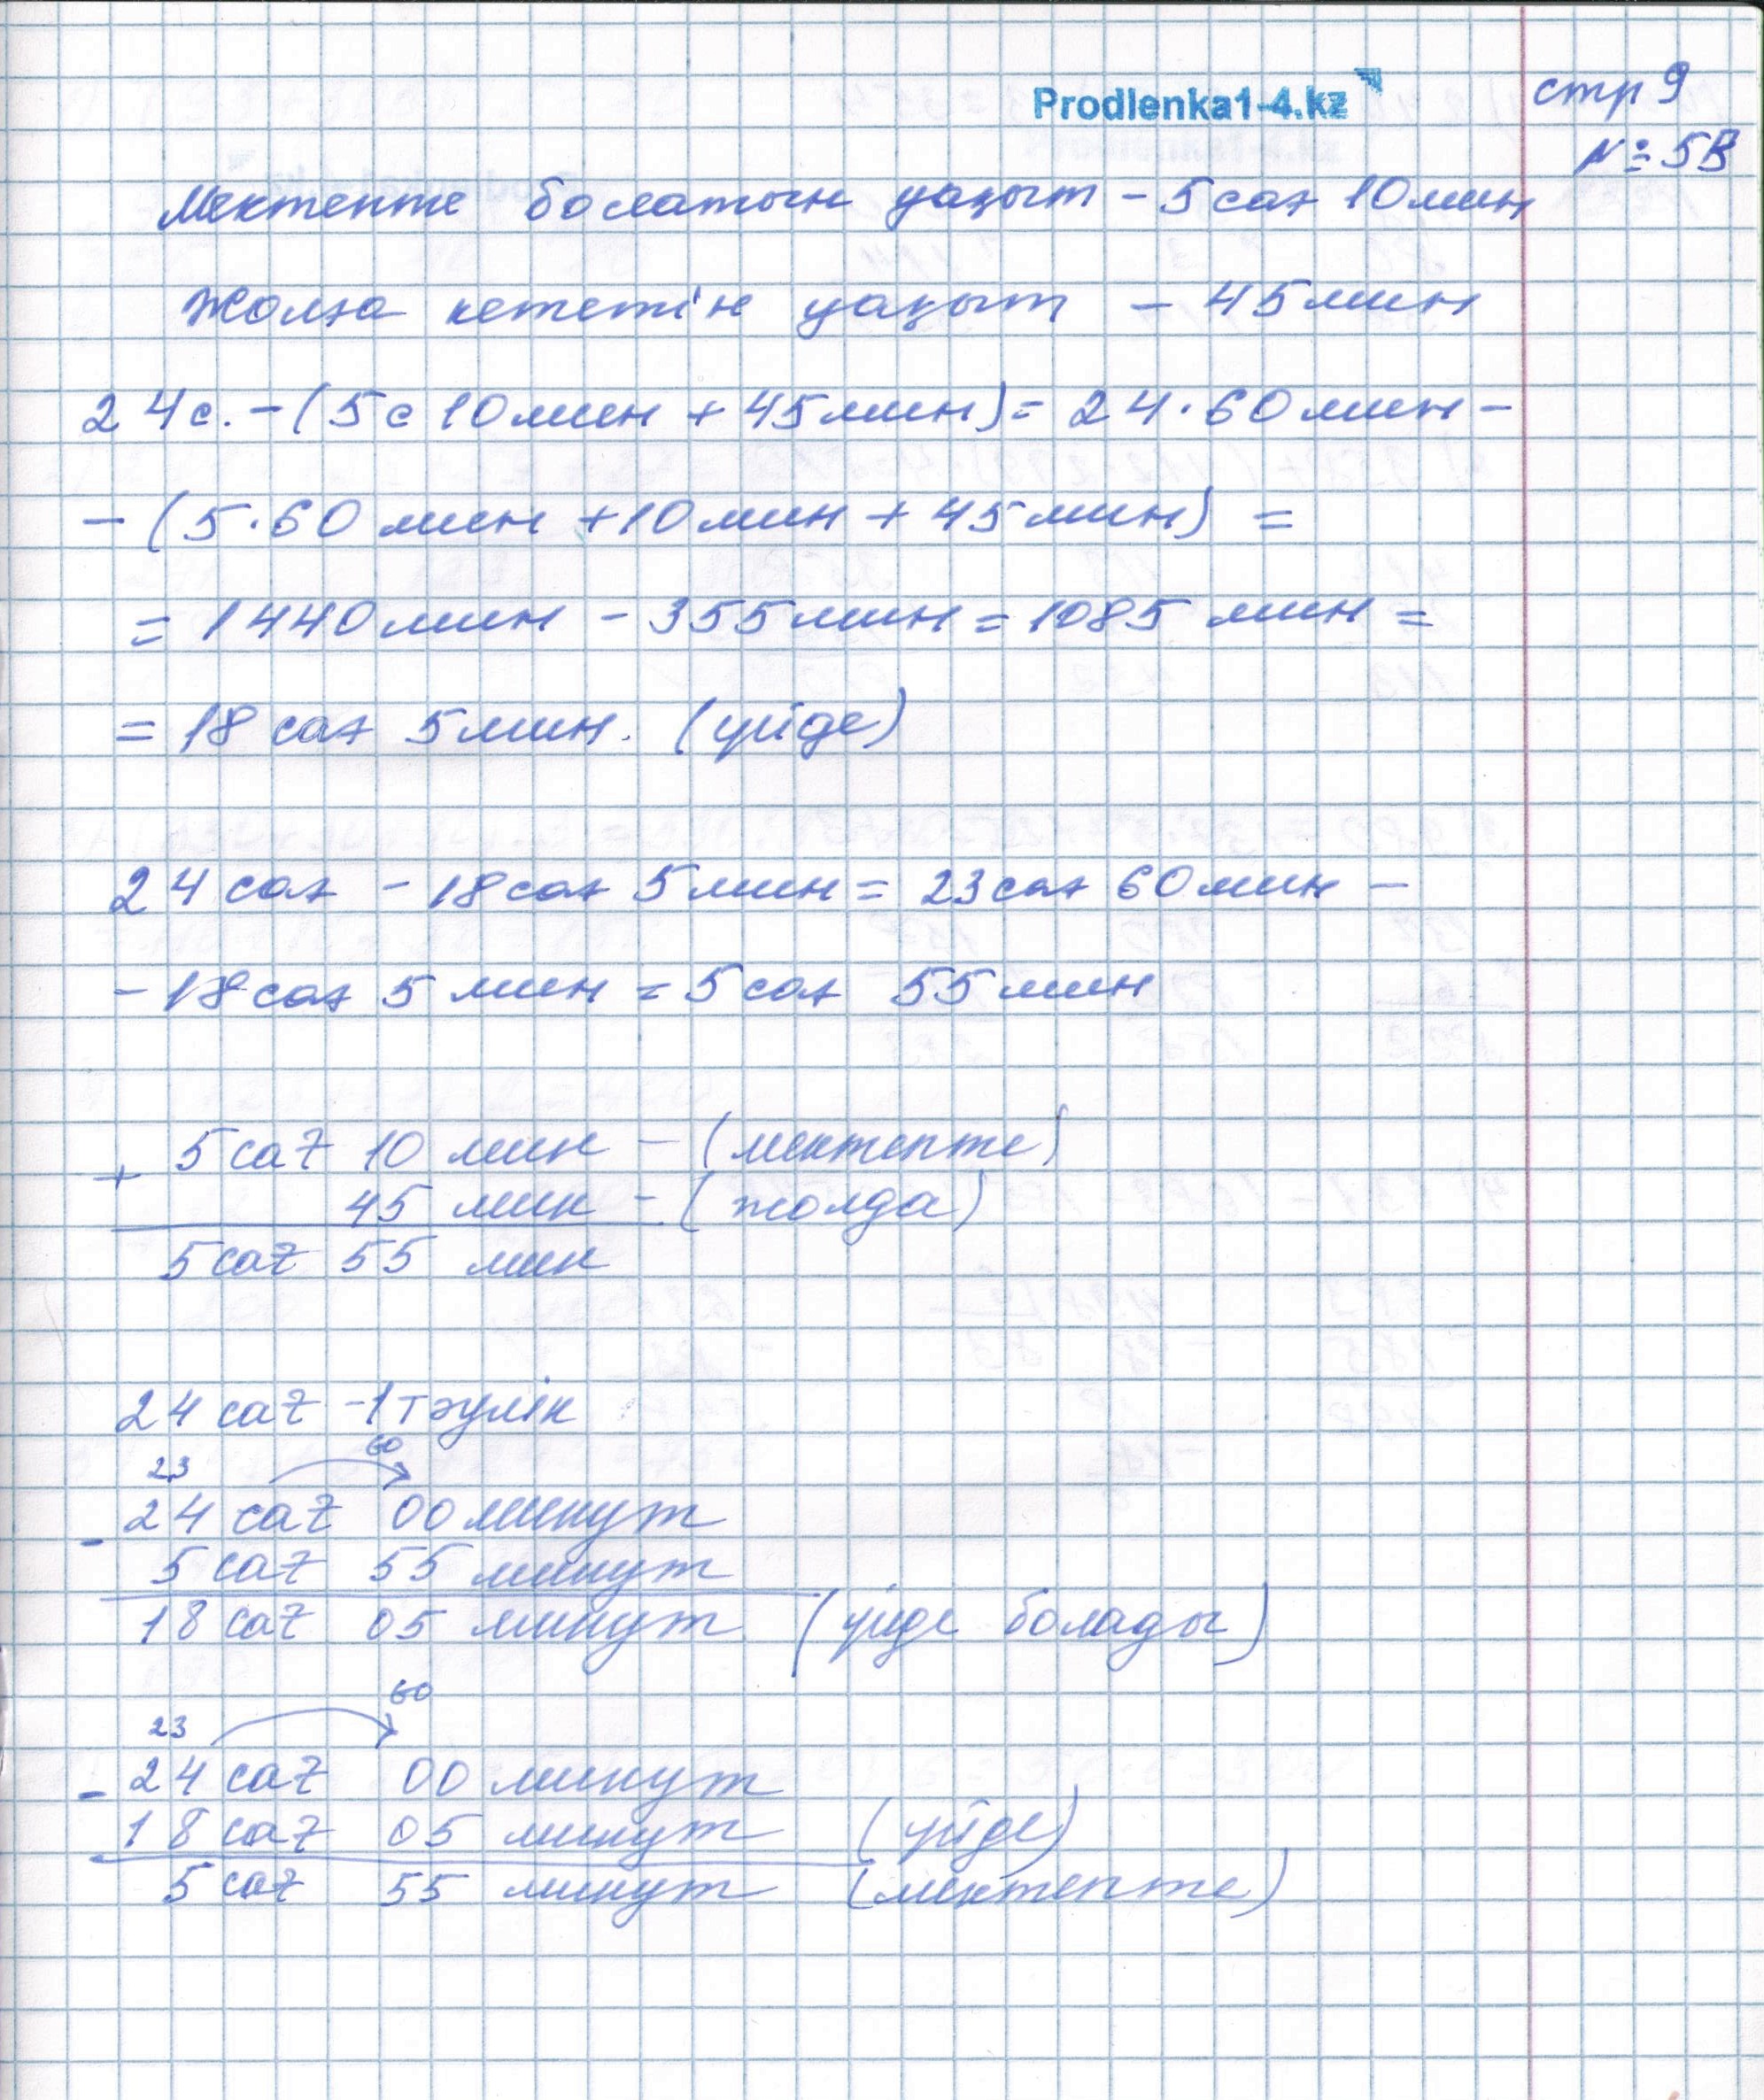 Prodlenka1-4.kz
стр 9
№ 5В
Мектепте болатын уақыт - 5 сағ 10 мин
Жолға кететін уақыт - 45 мин
24 с. - (5 с 10 мин + 45 мин) = 24 · 60 мин -
- (5 · 60 мин + 10 мин + 45 мин) =
= 1440 мин - 355 мин = 1085 мин =
= 18 сағ 5 мин. (үйде)
24 сағ - 18 сағ 5 мин = 23 сағ 60 мин -
- 18 сағ 5 мин = 5 сағ 55 мин
+ 5 сағ 10 мин - (мектепте)
45 мин - (жолда)
5 сағ 55 мин
24 сағ - 1 тәулік
23 60
- 24 сағ 00 минут
5 сағ 55 минут
18 сағ 05 минут (үйде болады)
23 60
- 24 сағ 00 минут
18 сағ 05 минут (үйде)
5 сағ 55 минут (мектепте)